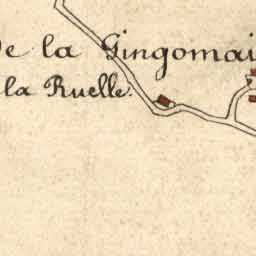 de la Gingomai
la Ruelle.